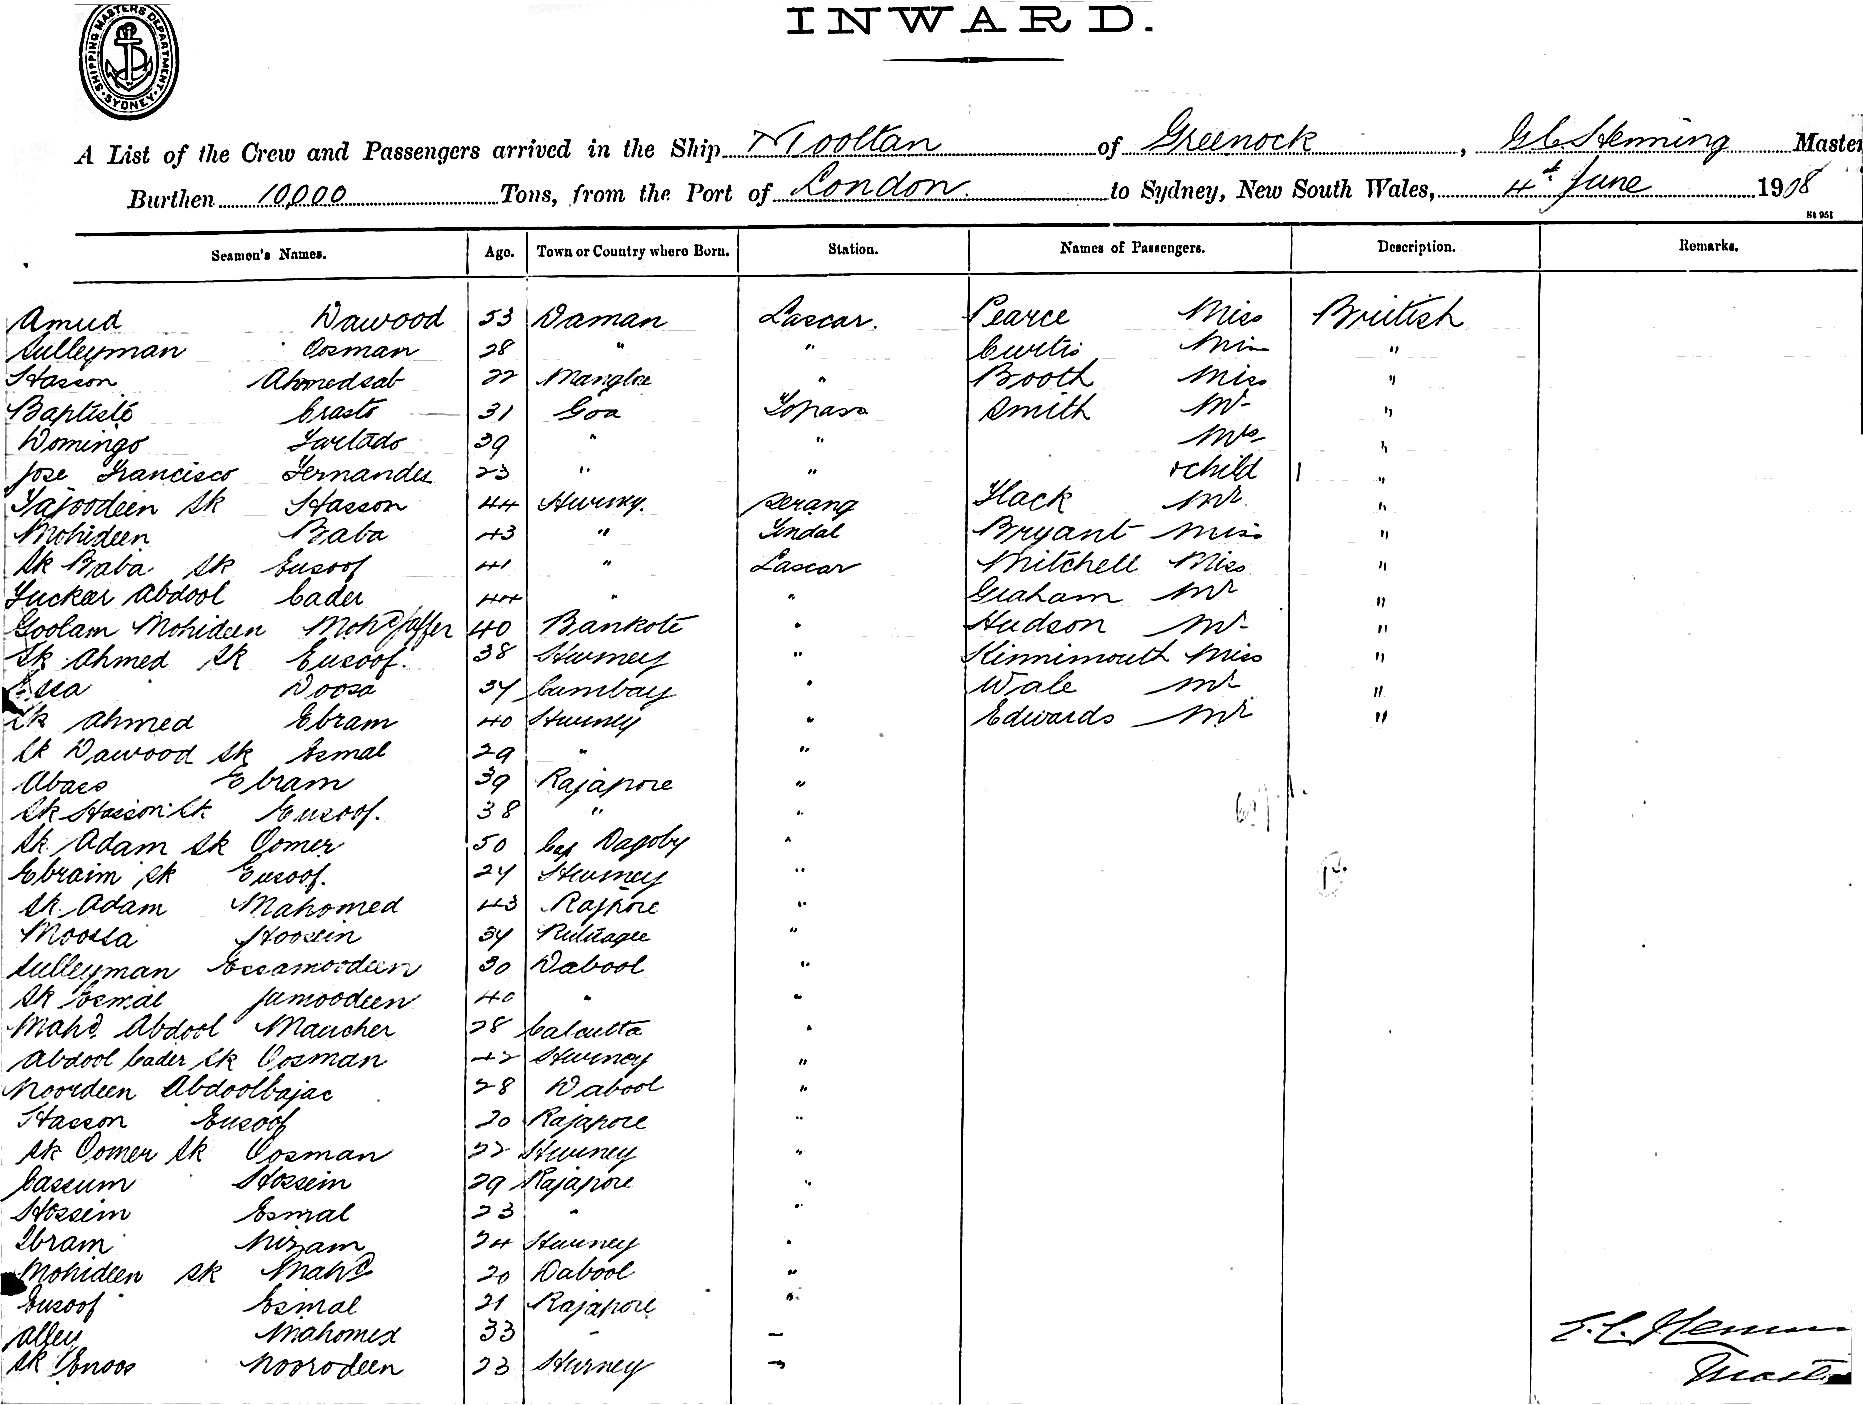 SHIPPING MASTERS DEPARTMENT SYDNEY
INWARD.
A List of the Crew and Passengers arrived in the Ship Mooltan of Greenock, Master
Burthen 10,000 Tons, from the Port of London to Sydney, New South Wales, 4th June 1908
St 951
Seamen's Names. Age. Town or Country where Born. Station. Names of Passengers. Description. Remarks.
Amud Dawood 53 Daman Lascar. Pearce Miss British
Sulleyman Oosman 28 " " Curtis Miss "
Hasson Ahmedsab 22 Manglore " Booth Miss "
Baptiste Erasto 31 Goa Topass Smith Mr "
Domingo Furtado 39 " " Mrs "
Jose Francisco Fernandes 23 " " child 1 "
Tajoodeen Sk Hasson 44 Hurney. Serang Flack Mr "
Mohideen Baba 43 " Tindal Bryant Miss "
Sk Baba Sk Eusoof 41 " Lascar Mitchell Miss "
Fuckar Abdool Cader 44 " " Graham Mr "
Goolam Mohideen Mohd Jaffer 40 Bankote " Hudson Mr "
Sk Ahmed Sk Eusoof. 38 Hurney " Kinnimouth Miss "
Essa Doosa 37 Cambay " Wale Mr "
Sk Ahmed Ebram 40 Hurney " Edwards Mr "
Sk Dawood Sk Esmal 29 " "
Abass Ebram 39 Rajapore "
Sk Hasson Sk Eusoof. 38 " "
Sk Adam Sk Oomer 50 Dagoby "
Ebraim Sk Eusoof. 27 Hurney "
Sk Adam Mahomed 43 Rajpore "
Moossa Hoosein 37 "
Sulleyman Essamoodeen 30 Dabool "
Sk Esmal Jamoodeen 40 " "
Mahd Abdool Maucher 28 Calcutta "
Abdool Cader Sk Oosman 42 Hurney "
Noordeen Abdoolbajac 28 Dabool "
Hasson Eusoof 20 Rajapore "
Sk Oomer Sk Oosman 22 Hurney "
Cassum Hossein 29 Rajapore "
Hossein Esmal 23 " "
Ebram Nizam 24 Hurney "
Mohideen Sk Mahd 20 Dabool "
Eusoof Esmal 21 Rajapore "
Alley Mahomed 33 " "
Sk Enoos Noorodeen 23 Hurney "
Master